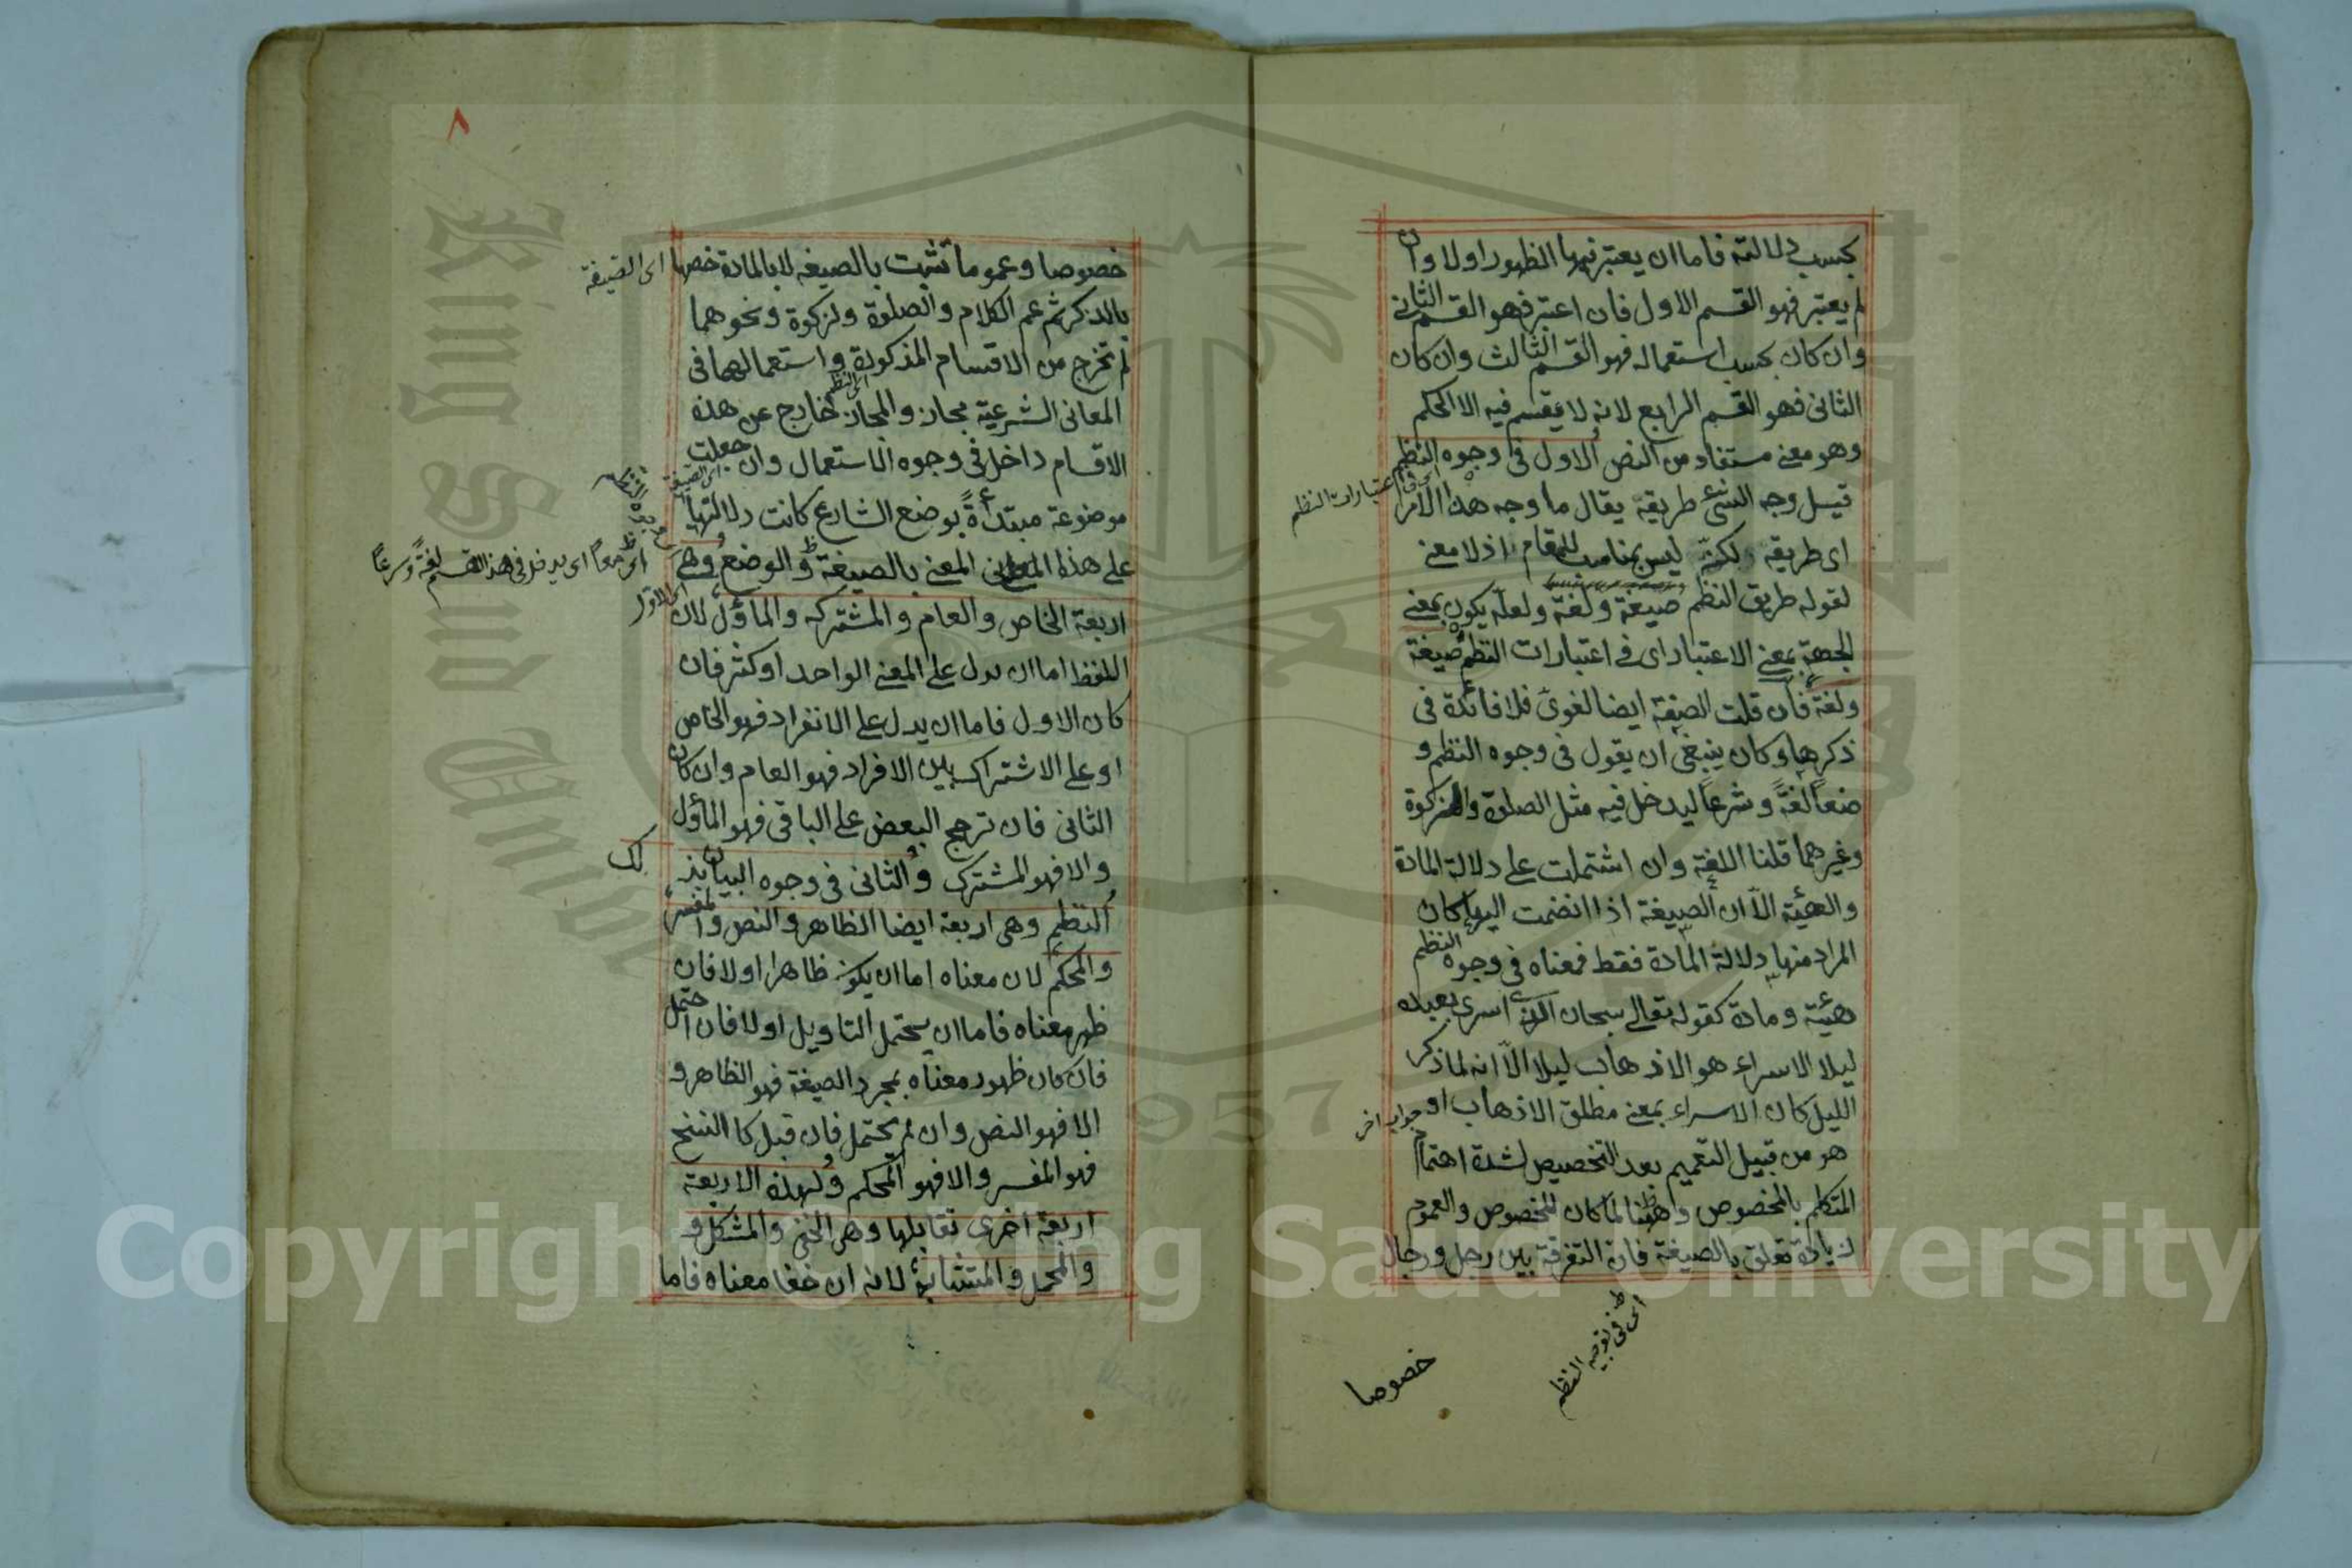 بحسب دلالته فاما ان يعتبر فيها الظهور اولا وان
لم يعتبر فهو القسم الاول فان اعتبر فهو القسم الثاني
وان كان بحسب استعماله فهو القسم الثالث وان كان
الثاني فهو القسم الرابع لانه لا يقسم فيه الا الحكم
وهو معنى مستفاد من النص الاول في وجوه النظم
قيل وجه الشئ طريقة يقال ما وجه هذا الامر
اى فى اعتبارات النظم
اى طريقه لكنه ليس بمناسب للمقام اذ لا معنى
لقوله طريق النظم صيغة ولغة ولعله يكون بمعنى
الجهة بمعنى الاعتبار اى فى اعتبارات النظم صيغة
ولغة فان قلت الصيغة ايضا لغوى فلا فائدة فى
ذكرها وكان ينبغى ان يقول فى وجوه النظم و
ضعا لغةً وشرعاً ليدخل فيه مثل الصلوة والزكوة
وغيرهما قلنا اللغة وان اشتملت على دلالة المادة
والهيئة الاّ ان الصيغة اذا انضمت اليها كان
المراد منها دلالة المادة فقط فمعناه فى وجوه النظم
هيئة ومادة كقوله تعالى سبحان الذى اسرى بعبده
ليلا الاسراء هو الاذهاب ليلا الاّ انه لما ذكر
الليل كان الاسراء بمعنى مطلق الاذهاب او
جواب اخر
هو من قبيل التعميم بعد التخصيص لشدة اهتمام
المتكلم بالمخصوص وههنا لما كان للخصوص والعموم
زيادة تعلق بالصيغة فان التفرقة بين رجل ورجال
النظم
خصوصا
٨
خصوصا وعموما تثبت بالصيغة لا بالمادة خصها
اى الصيغة
بالذكر ثم عم الكلام والصلوة ولزكوة ونحوهما
لم تخرج من الاقسام المذكورة واستعمالهما فى
اى النظم
المعانى الشرعية مجاز والمجاز خارج عن هذه
الاقسام داخل فى وجوه الاستعمال وان جعلت
اى الصيغة
موضوعة مبتدأةً بوضع الشارع كانت دلالتها
على هذا المعنى بالصيغة والوضع وهى
اى يدخل فى هذا القسم لغةً وشرعاً
اربعة الخاص والعام والمشترك والمأول لان
اى الاول
اللفظ اما ان يدل على المعنى الواحد او كثر فان
كان الاول فاما ان يدل على الانفراد فهو الخاص
او على الاشتراك بين الافراد فهو العام وان كان
الثانى فان ترجح البعض على الباقى فهو المأول
والا فهو المشترك والثانى فى وجوه البيان بذ
لك
النظم وهى اربعة ايضا الظاهر والنص والمفسر
والمحكم لان معناه اما ان يكون ظاهرا اولا فان
ظهر معناه فاما ان يحتمل التاويل اولا فان احتمل
فان كان ظهور معناه بمجرد الصيغة فهو الظاهر و
الا فهو النص وان لم يحتمل فان قبل كا النسخ
فهو المفسر والا فهو المحكم ولهذه الاربعة
اربعة اخرى تقابلها وهى الخفى والمشكل و
والمجمل والمتشابه لانه ان خفا معناه فاما
King Saud University
1957
Copyright © King Saud University